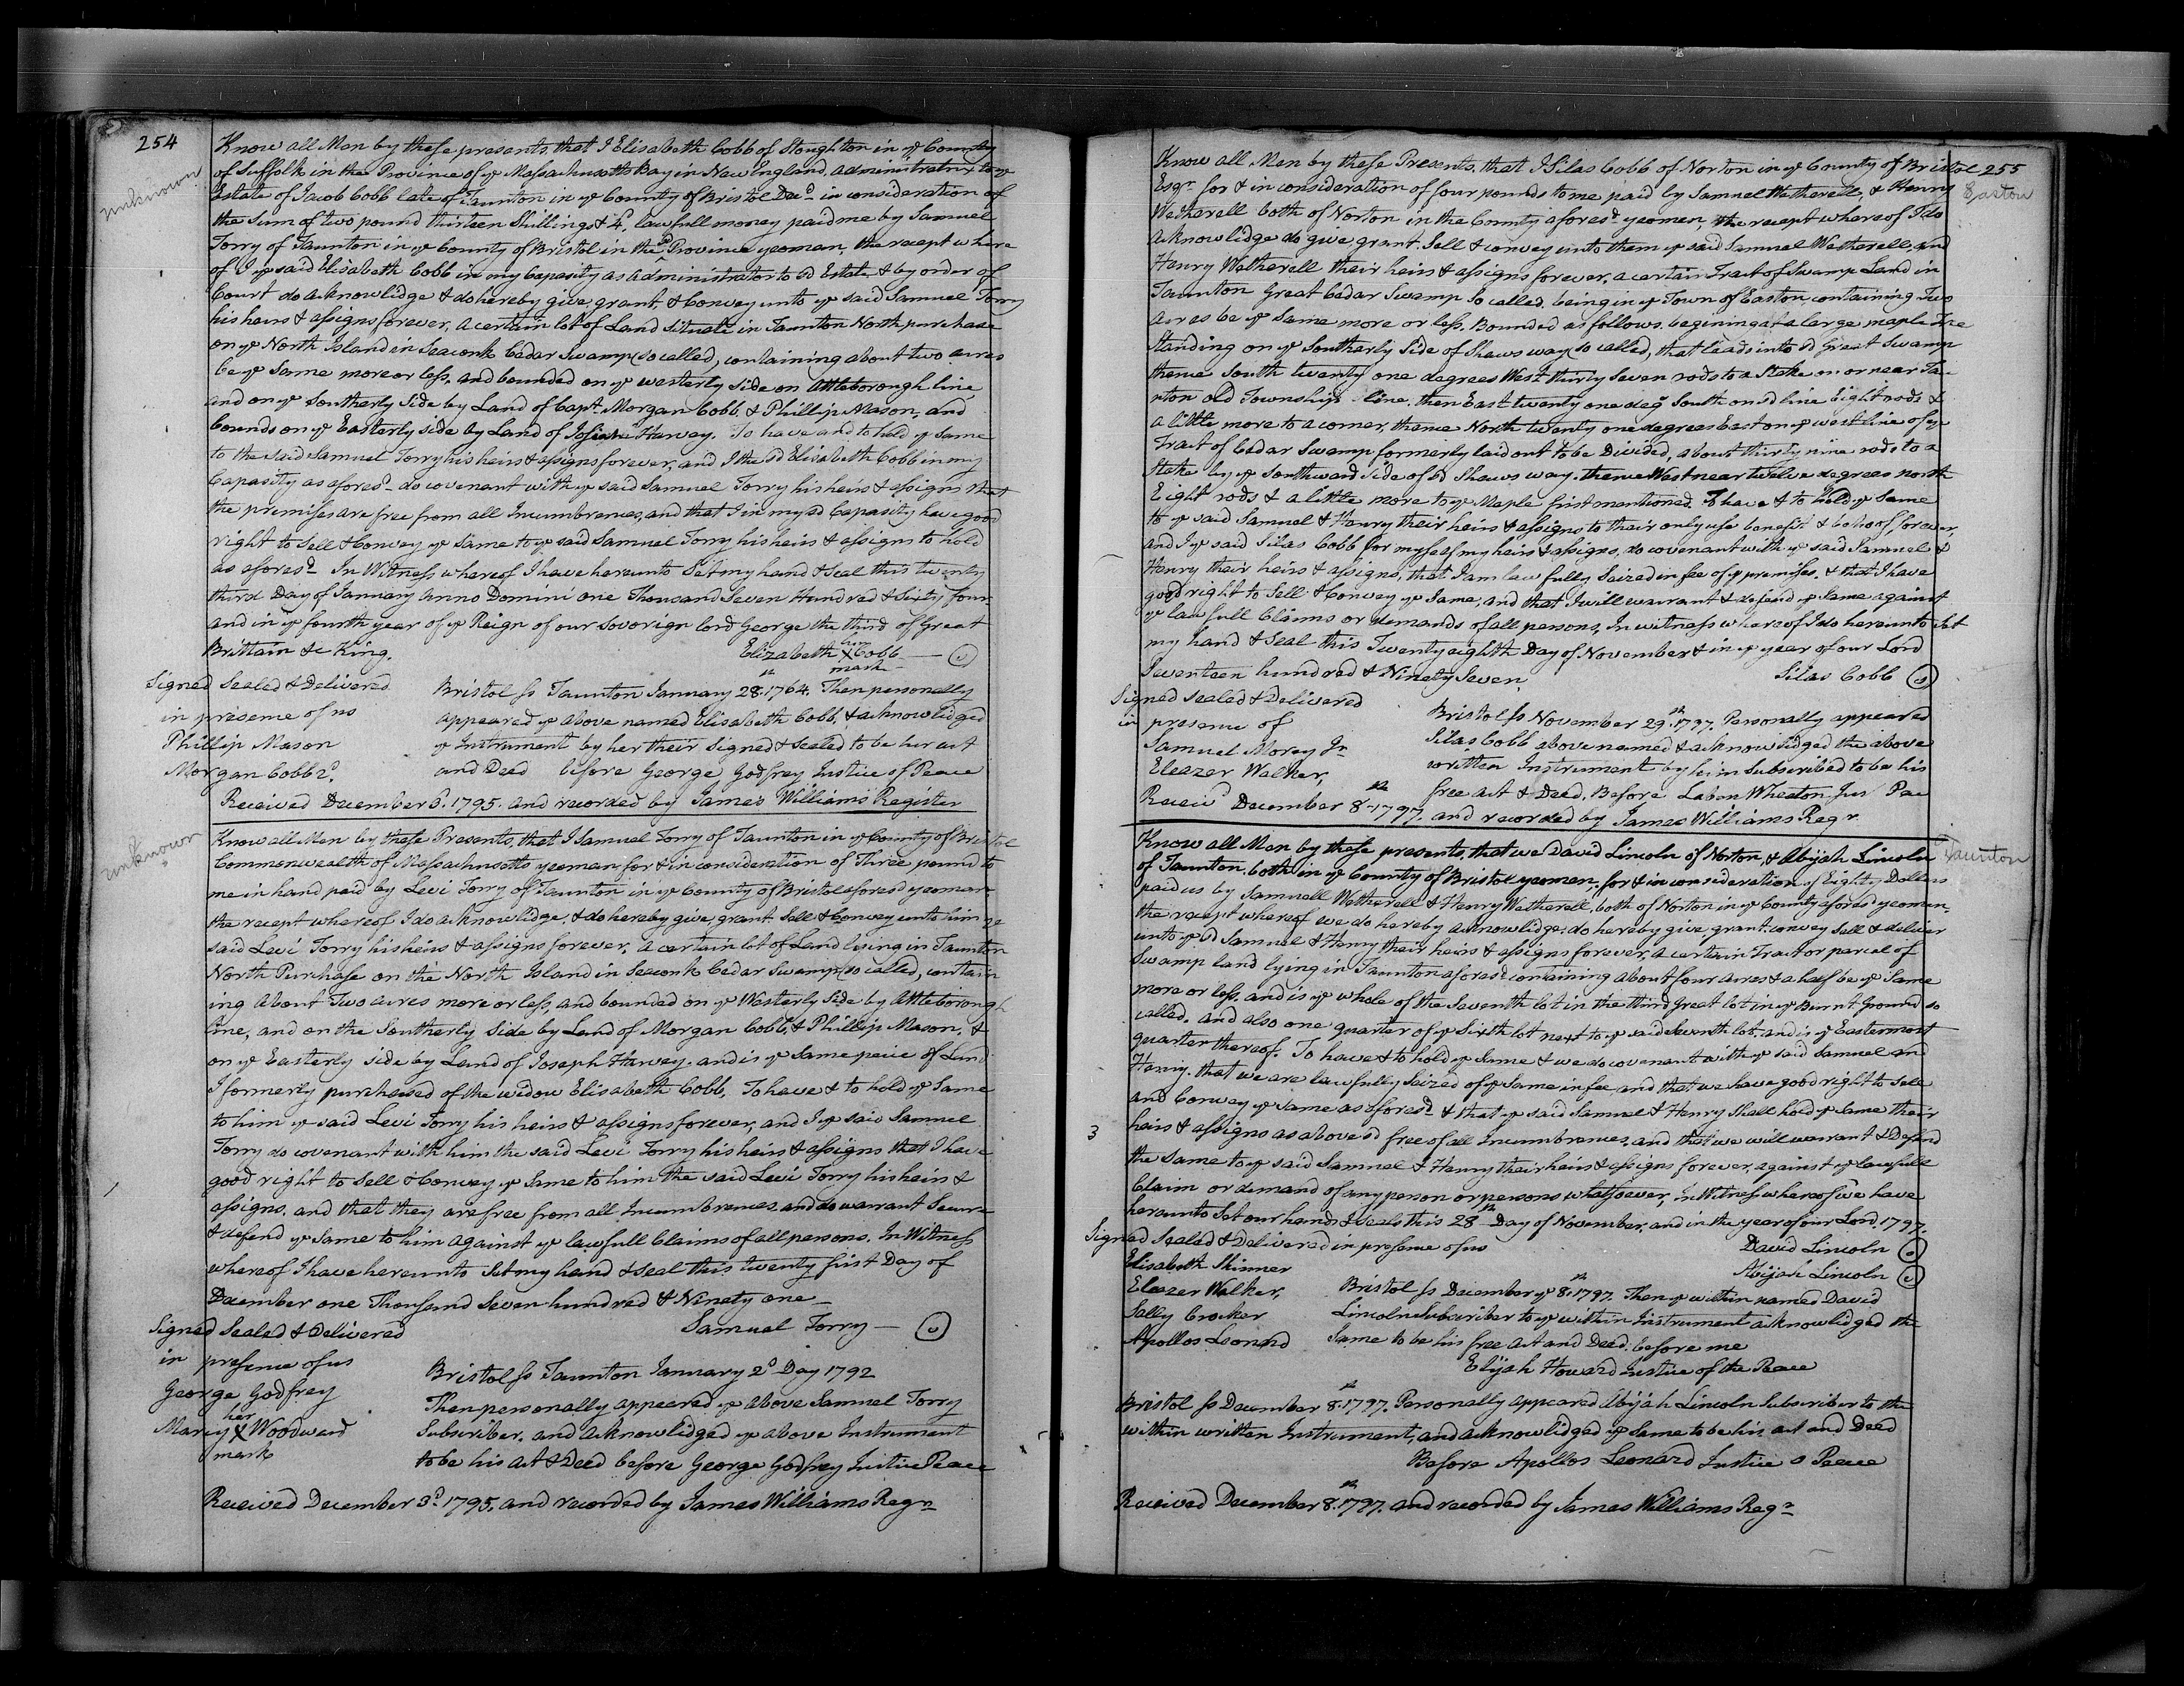 254
unknown
Know all Men by these presants, that I Elisabeth Cobb of Stoughton in ye County
of Suffolk in the Province of ye Massachusetts Bay in New England, administratrix to ye
Estate of Jacob Cobb late of Taunton in ye County of Bristol Decd in consideration of
the Sum of two pound thirteen Shillings & 4d, lawfull money paid me by Samuel
Torry of Taunton in ye County of Bristol in the sd Province yeoman, the recept where
of I ye said Elisabeth Cobb in my Capasity as administrator to sd Estate & by order of
Court do acknowlidge & do hereby give, grant, & Convey unto ye said Samuel Torry
his heirs & assigns forever, a certain lot of Land situate in Taunton North purchase
on ye North Island in Seaconk Cedar Swamp (so called, containing about two acres
be ye same more or less, and bounded on ye westerly side on Attleborough line
and on ye Southerly side by Land of Capt Morgan Cobb, & Phillip Mason, and
bounds on ye Easterly side by Land of Harvey. To have and to hold ye same
to the said Samuel Torry his heirs & assigns forever, and I the sd Elisabeth Cobb in my
Capasity as aforesd do covenant with ye said Samuel Torry his heirs & assigns that
the premises are free from all Incumbrences, and that I in my sd Capasity have good
right to Sell & Convey ye same to ye said Samuel Torry his heirs & assigns to hold
as aforesd In Witness whereof I have hereunto Set my hand & Seal this twenty
third Day of January Anno Domini one Thousand Seven Hundred & Sixty four
and in ye fourth year of ye Reign of our Sovereign lord George the third of Great
Brittain &c King.
her
Elizabeth X Cobb
mark
Signed Sealed & Delivered
in presence of us
Phillip Mason
Morgan Cobb 2d.
Bristol ss Taunton January 28th 1764. Then personally
appeared ye above named Elisabeth Cobb, & acknowlidged
ye Instrument by her their Signed & Sealed to be her act
and Deed before George Godfrey Justice of Peace
Received December 3. 1795. and recorded by James Williams Register
unknown
Know all Men by these Presents, that I Samuel Torry of Taunton in ye County of Bristol
Commonwealth of Massachusetts yeoman for & in consideration of Three pound to
me in hand paid by Levi Torry of Taunton in ye County of Bristol aforesd yeoman
the recept whereof I do acknowlidge, & do hereby give, grant Sell & Convey unto him ye
said Levi Torry his heirs & assigns forever, a certain lot of Land lying in Taunton
North Purchase on the North Island in Seaconk Cedar Swamp (so called, contain
ing about Two acres more or less, and bounded on ye Westerly Side by Attleborough
line, and on the Southerly side by Land of Morgan Cobb, & Phillip Mason, &
on ye Easterly side by Land of Joseph Harvey. and is ye same peice of Land
I formerly purchased of the widow Elisabeth Cobb, To have & to hold ye same
to him ye said Levi Torry his heirs & assigns forever, and I ye said Samuel
Torry do covenant with him the said Levi Torry his heirs & assigns that I have
good right to Sell & Convey ye Same to him the said Levi Torry his heirs &
assigns. and that they are free from all Incumbrences and do warrant Secure
& defend ye same to him against ye lawfull Claims of all persons. In Witness
whereof I have hereunto Set my hand & Seal this twenty first Day of
December one Thousand Seven hundred & Ninety one
Samuel Torry
Signed Sealed & Delivered
in presence of us
George Godfrey
her
Marcy X Woodward
mark
Bristol ss Taunton January 2d Day 1792
Then personally appeared ye above Samuel Torry
Subscriber. and acknowlidged ye above Instrument
to be his Act & Deed before George Godfrey Justice Peace
Received December 3d 1795, and recorded by James Williams Regr
255
Easton
Know all Men by these Presents, that I Silas Cobb of Norton in ye County of Bristol
Esqr for & in consideration of four pounds to me paid by Samuel Wetherell, & Henry
Wetherell both of Norton in the County aforesd yeomen, the recept whereof I do
acknowlidge do give grant, Sell & convey unto them ye said Samuel Wetherell and
Henry Wetherell their heirs & assigns forever, a certain Tract of Swamp Land in
Taunton Great Cedar Swamp so called, being in ye Town of Easton containing Two
acres be ye same more or less. Bounded as follows. begining at a large maple Tree
Standing on ye Southerly Side of Shaws way (so called, that leads into sd Great Swamp
thence South twenty one degrees West thirty Seven rods to a Stake on or near Ta
nton old Township line, then East twenty one degs South on sd line Eight rods &
a little more to a corner, thence North twenty one degrees East on ye west line of ye
Tract of Cedar Swamp formerly laid out to be Divided, about thirty nine rods to a
Stake by ye Southward side of sd Shaws way. thence West near twelve degrees north
Eight rods & a little more to ye Maple first mentioned. To have & to hold ye Same
to ye said Samuel & Henry their heirs & assigns to their only use benefit & behoof forever,
and I ye said Silas Cobb for myself my heirs & assigns, do covenant with ye said Samuel &
Henry their heirs & assigns, that I am lawfully Seized in fee of ye premises. & that I have
good right to Sell & Convey ye Same, and that I will warrant & defend ye Same against
ye lawfull Claims or demands of all persons, In witness whereof I do hereunto Set
my hand & Seal this Twenty eighth Day of November & in ye year of our Lord
Seventeen hundred & Ninety Seven.
Silas Cobb
Signed Sealed & Delivered
in presence of
Samuel Morey Jr
Eleazer Walker,
Bristol ss November 29th 1797. Personally appeared
Silas Cobb above named & acknowlidged the above
written Instrument by him Subscribed to be his
free act & Deed. Before Laban Wheaton Jus Pac
Receivd December 8th 1797. and recorded by James Williams Regr
Taunton
Know all Men by these presents, that we David Lincoln of Norton, & Abijah Lincoln
of Taunton, both in ye County of Bristol yeomen, for & in consideration of Eighty Dollars
paid us by Samuell Wetherell & Henry Wetherell, both of Norton in ye County aforesd yeomen,
the recept whereof we do hereby acknowlidge, do hereby give, grant, convey Sell & deliver
unto ye sd Samuel & Henry their heirs & assigns forever, a certain Tract or parcel of
Swamp land lying in Taunton aforesd containing about four acres & a half be ye Same
more or less, and is ye whole of the Seventh lot in the third Great lot in ye Burnt Ground so
called. and also one quarter of ye Sixth lot next to ye said Seventh lot. and is ye Eastermost
quarter thereof. To have & to hold ye Same & we do covenant with ye said Samuel and
Henry. that we are lawfully Seized of ye Same in fee, and that we have good right to Sell
and Convey ye same as aforesd & that ye said Samuel & Henry Shall hold ye Same their
3
heirs & assigns as above sd free of all Incumbrences, and that we will warrant & Defend
the Same to ye said Samuel & Henry their heirs & assigns forever, against ye Lawfull
Claim or demand of any person or persons whatsoever, In Witness whereof we have
hereunto Set our hands & Seals this 28th Day of November, and in the year of our Lord 1797.
Signed Sealed & Delivered in presence of us
David Lincoln
Abijah Lincoln
Elisabeth Skinner
Eleazer Walker,
Sally Crocker
Apollos Leonard
Bristol ss December ye 8th 1797. Then ye within named David
Lincoln Subscriber to ye within Instrument acknowlidged the
Same to be his free act and Deed. before me
Elijah Howard Justice of the Peace
Bristol ss December 8th 1797. Personally appeared Abijah Lincoln Subscriber to the
within written Instrument, and acknowlidged ye Same to be his act and Deed
Before Apollos Leonard Justice o Peace
Received December 8th 1797. and recorded by James Williams Regr